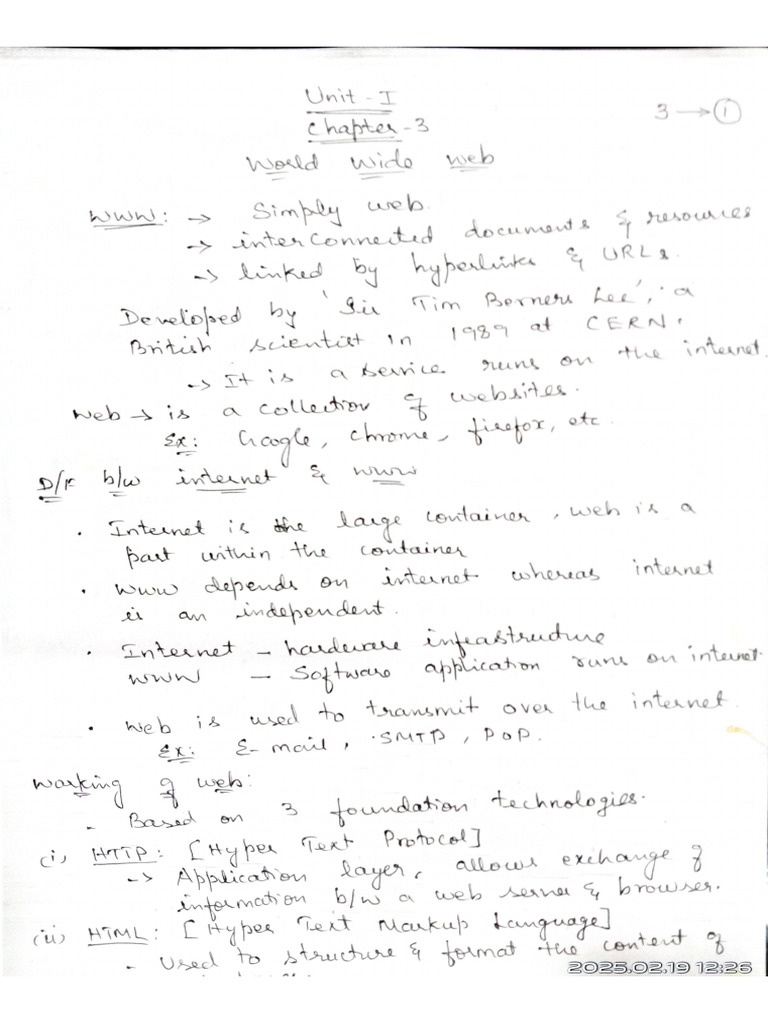 Unit - I
3 → 1
Chapter - 3
World Wide Web
WWW: → Simply web.
→ interconnected documents & resources
→ linked by hyperlinks & URLs.
Developed by 'Sir Tim Berners Lee', a
British scientist in 1989 at CERN.
→ It is a service runs on the internet.
Web → is a collection of websites.
Ex: Google, Chrome, firefox, etc
D/f b/w internet & www
• Internet is the large container, web is a
part within the container
• www depends on internet whereas internet
is an independent.
• Internet - hardware infrastructure
WWW - Software application runs on internet.
• Web is used to transmit over the internet.
Ex: E-mail, SMTP, POP.
Working of web:
- Based on 3 foundation technologies.
(i) HTTP: [Hyper Text Protocol]
→ Application layer, allows exchange of
information b/w a web server & browser.
(ii) HTML: [Hyper Text Markup Language]
- Used to structure & format the content of
2025.02.19 12:26